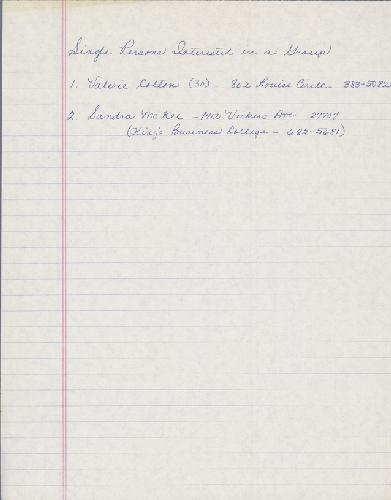 Single Persons Interested in a Group
1. Valerie Cotten (30) - 802 Louise Circle - 383-5082
2. Sandra McKee - 1412 Vickers Ave. 27707
(King's Business College - 682-5681)